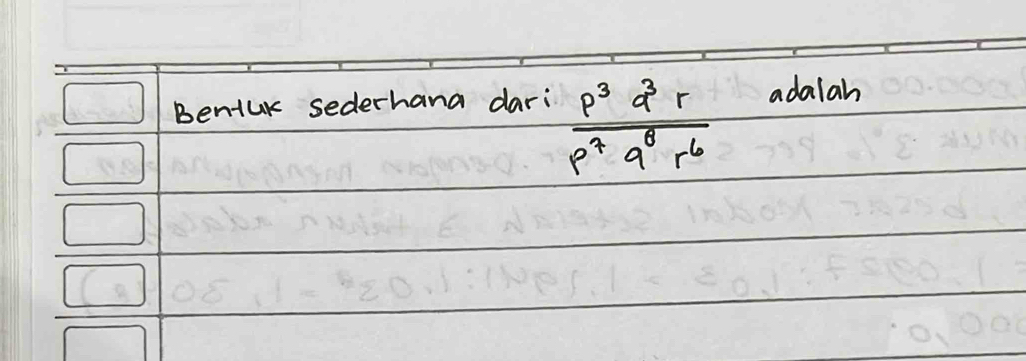 Bentuk sederhana dari p³ q³ r / p⁷ q⁸ r⁶ adalah